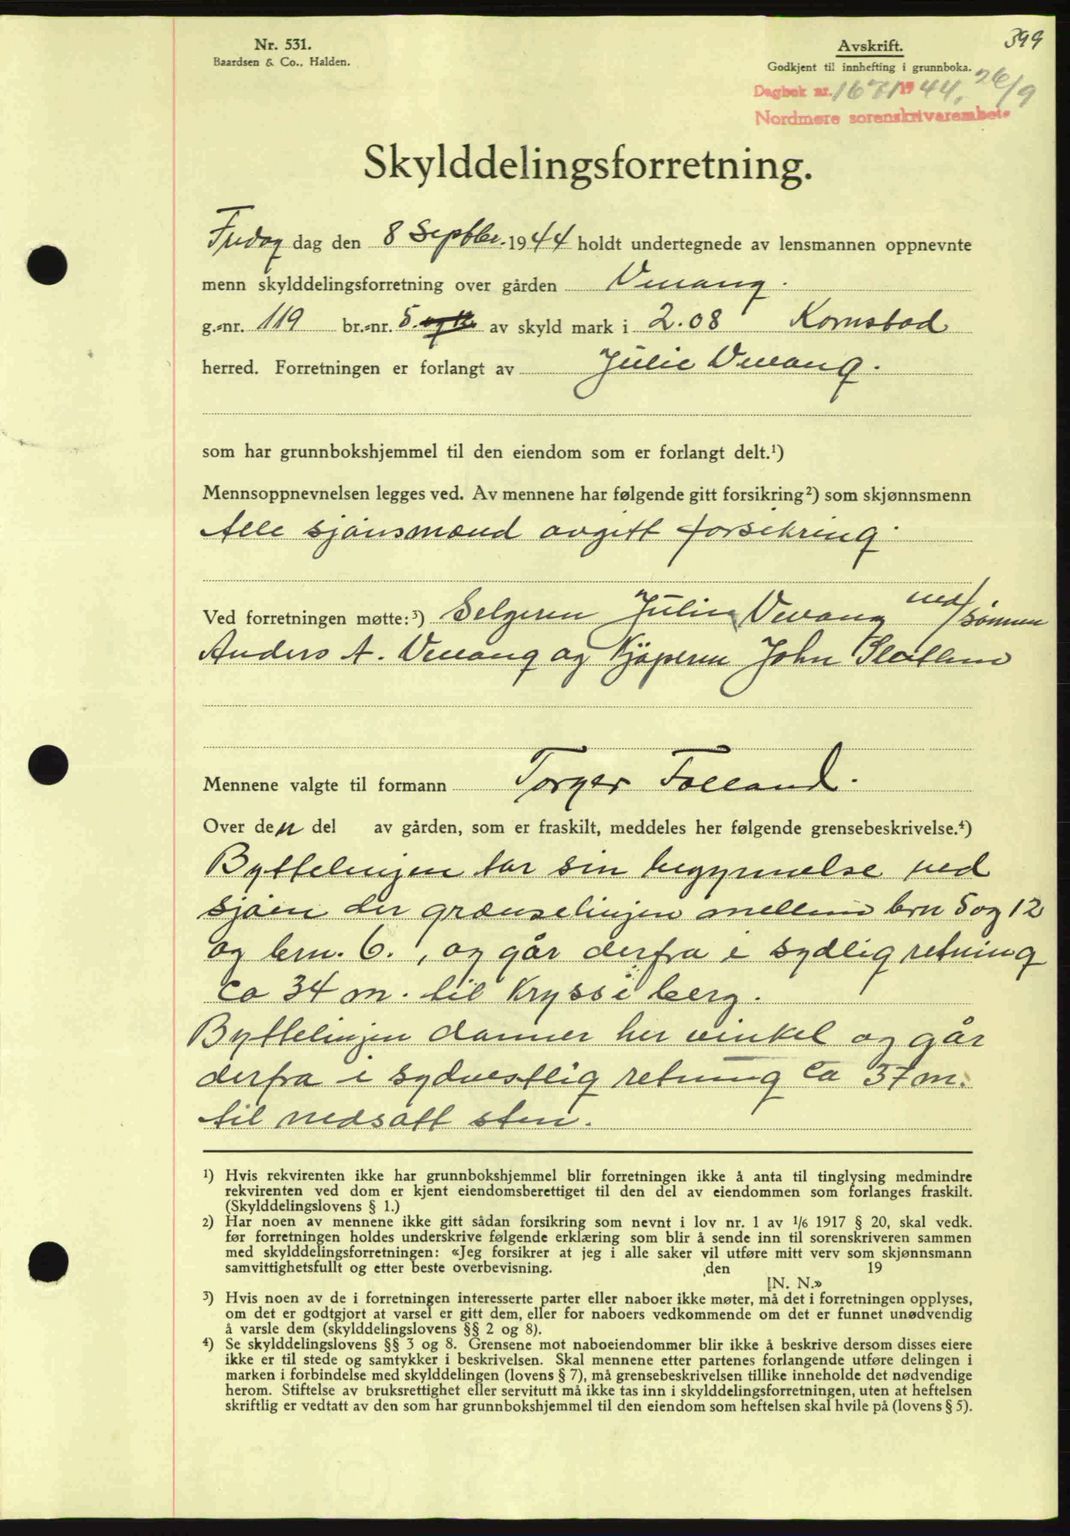 399
Nr. 531.
Baardsen & Co., Halden.
Avskrift.
Godkjent til innhefting i grunnboka.
Dagbok nr. 1671 1944, 26/9
Nordmøre sorenskrivarembete
Skylddelingsforretning.
Fredag dag den 8 Septbr. 1944 holdt undertegnede av lensmannen oppnevnte
menn skylddelingsforretning over gården Vevang.
g.-nr. 119 br.-nr. 5. og 12. av skyld mark i 2.08 Kornstad
herred. Forretningen er forlangt av Julie Vevang.
som har grunnbokshjemmel til den eiendom som er forlangt delt.¹)
Mennsoppnevnelsen legges ved. Av mennene har følgende gitt forsikring²) som skjønnsmenn
Alle sjønsmænd avgitt forsikring.
Ved forretningen møtte:³) Selgeren Julie Vevang med/sønnen
Anders A. Vevang og Kjøperen John
Mennene valgte til formann Torger Folland.
Over den del av gården, som er fraskilt, meddeles her følgende grensebeskrivelse.⁴)
Byttelinjen tar sin begynnelse ved
sjøen der grænselinjen mellem brn 5 og 12
og brn. 6., og går derfra i sydlig retning
ca 34 m. til Kryss i berg.
Byttelinjen danner her vinkel og går
derfra i sydvestlig retning ca 37 m.
til nedsatt sten.
¹) Hvis rekvirenten ikke har grunnbokshjemmel blir forretningen ikke å anta til tinglysing medmindre
rekvirenten ved dom er kjent eiendomsberettiget til den del av eiendommen som forlanges fraskilt.
(Skylddelingslovens § 1.)
²) Har noen av mennene ikke gitt sådan forsikring som nevnt i lov nr. 1 av 1/6 1917 § 20, skal vedk.
før forretningen holdes underskrive følgende erklæring som blir å sende inn til sorenskriveren sammen
med skylddelingsforretningen: «Jeg forsikrer at jeg i alle saker vil utføre mitt verv som skjønnsmann
samvittighetsfullt og etter beste overbevisning. den 19
[N. N.»
³) Hvis noen av de i forretningen interesserte parter eller naboer ikke møter, må det i forretningen opplyses,
om det er godtgjort at varsel er gitt dem, eller for naboers vedkommende om det er funnet unødvendig
å varsle dem (skylddelingslovens §§ 2 og 8).
⁴) Se skylddelingslovens §§ 3 og 8. Grensene mot naboeiendommer blir ikke å beskrive dersom disses eiere
ikke er til stede og samtykker i beskrivelsen. Skal mennene etter partenes forlangende utføre delingen i
marken i forbindelse med skylddelingen (lovens § 7), må grensebeskrivelsen tillike inneholde det nødvendige
herom. Stiftelse av bruksrettighet eller servitutt må ikke tas inn i skylddelingsforretningen, uten at heftelsen
skriftlig er vedtatt av den som har grunnbokshjemmel til den eiendom som heftelsen skal hvile på (lovens § 5).